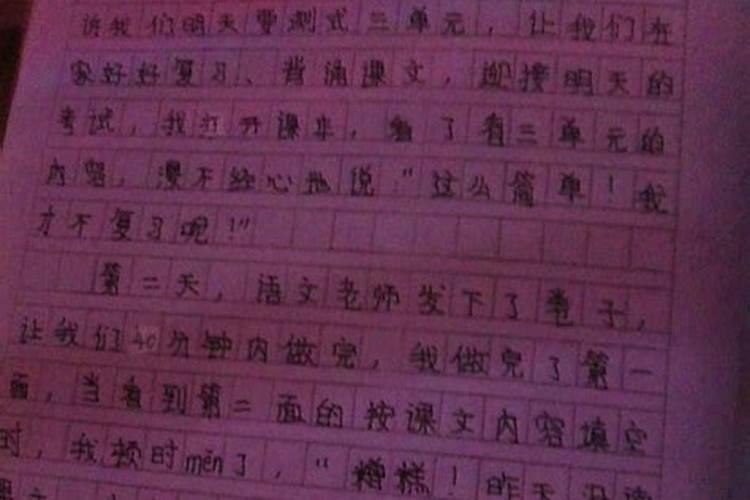 诉我们明天要测式三单元，让我们在
家好好复习、背诵课文，迎接明天的
考试，我打开课本，看了看三单元的
内容，漫不经心地说“这么简单！我
才不复习呢！”
第二天，语文老师发下了卷子，
让我们40分钟内做完，我做完了第一
面，当看到第二面的按课文内容填空
时，我顿时mēn了，“糟糕！昨天没